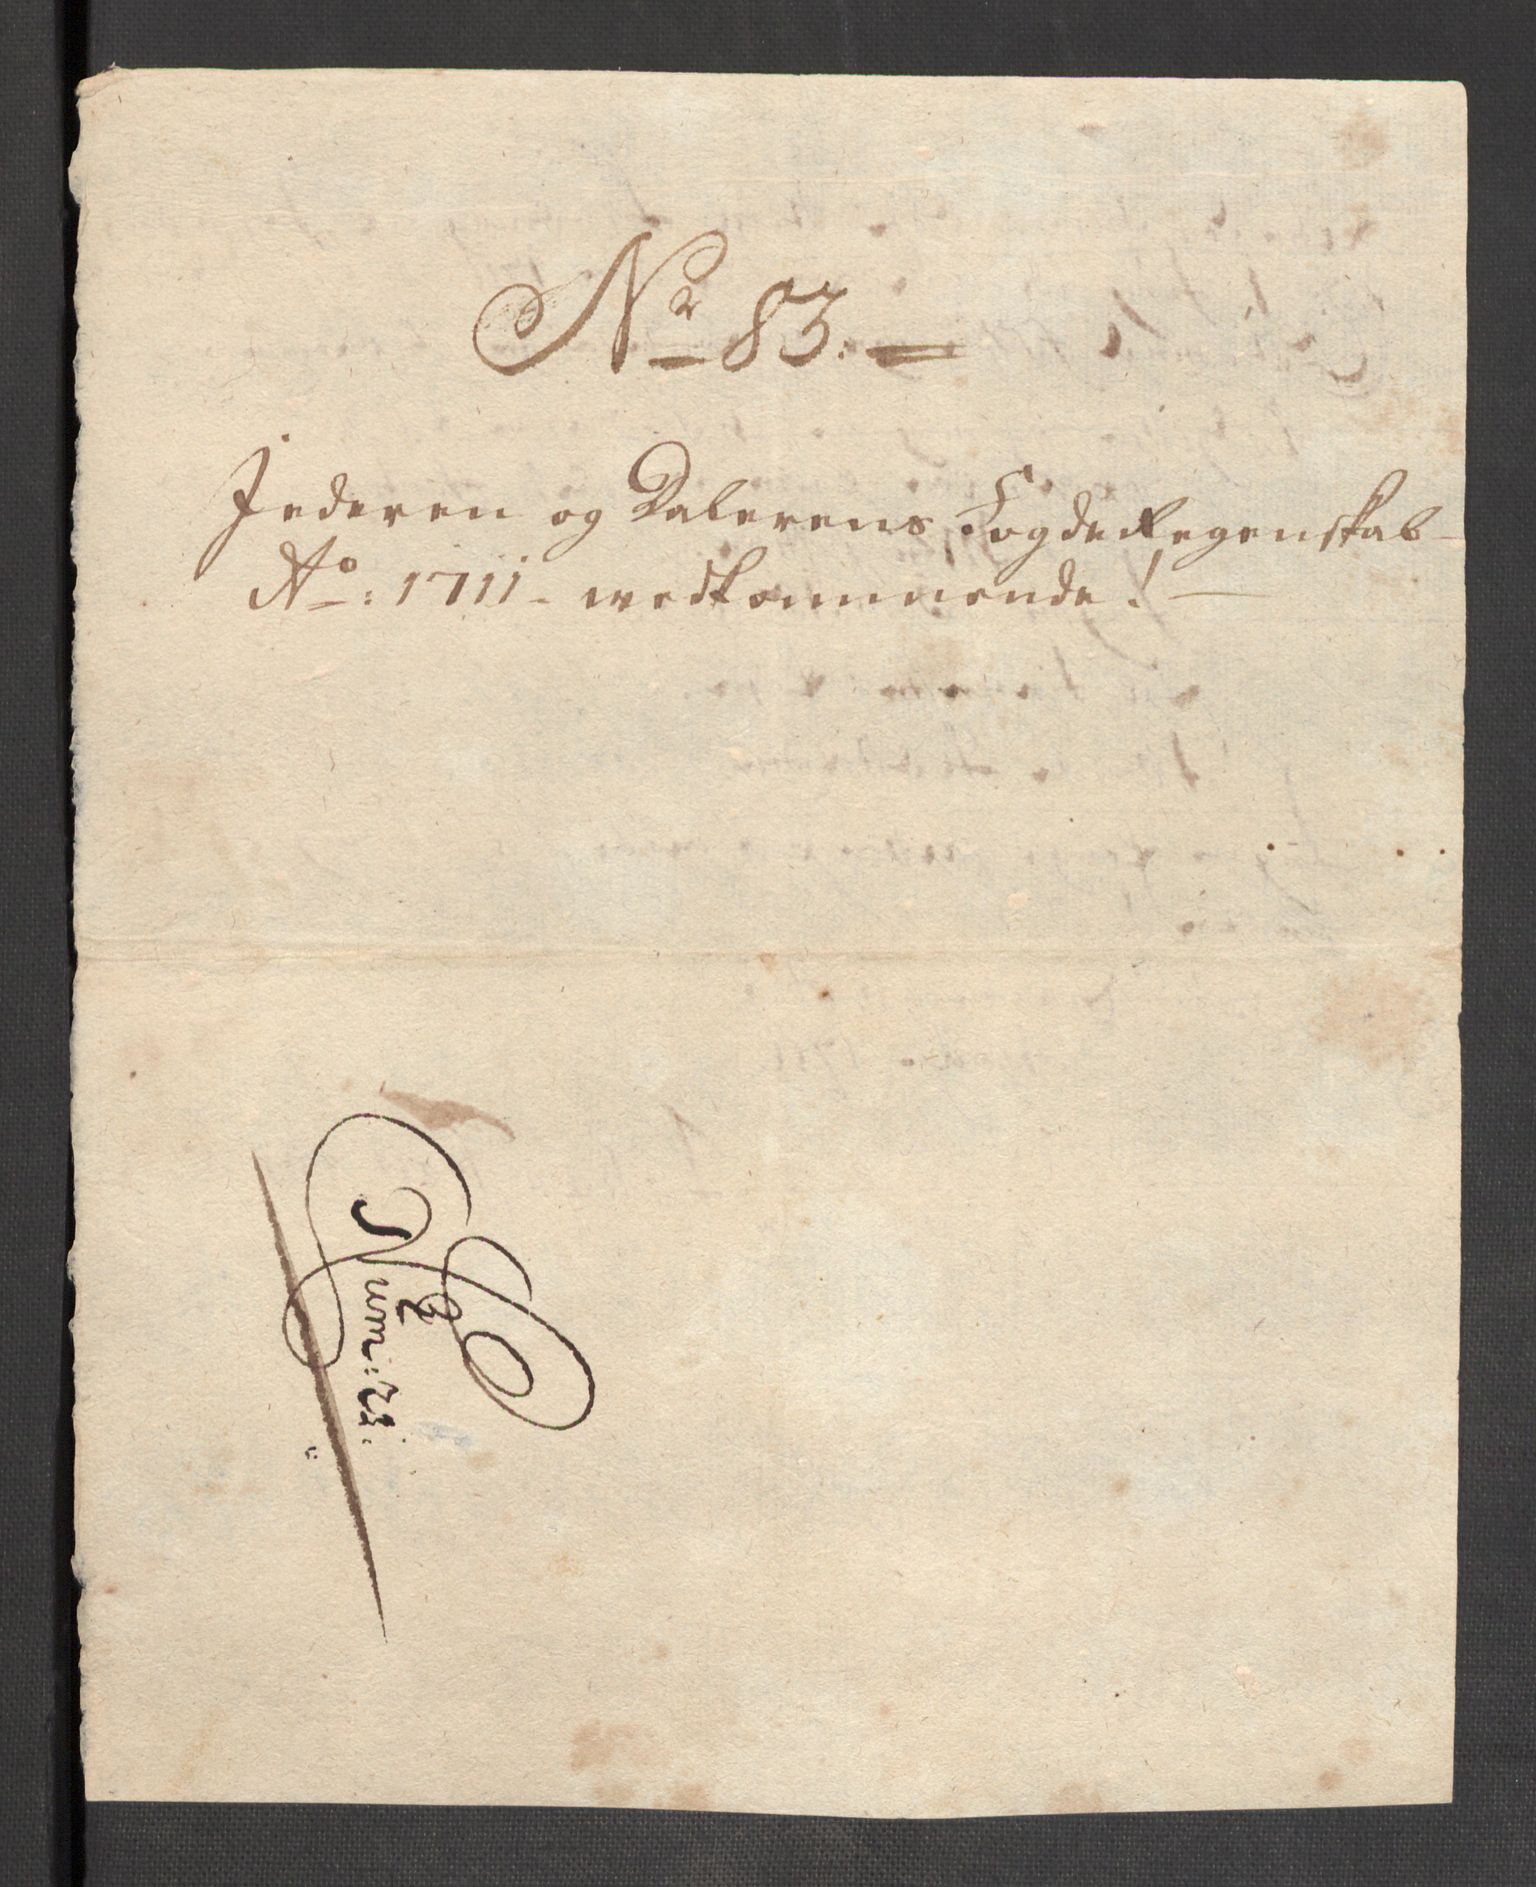 No 83.
Jederen og Dalerens Fogde Regenskab
Ao: 1711 - vedkommende!
Num: 23.